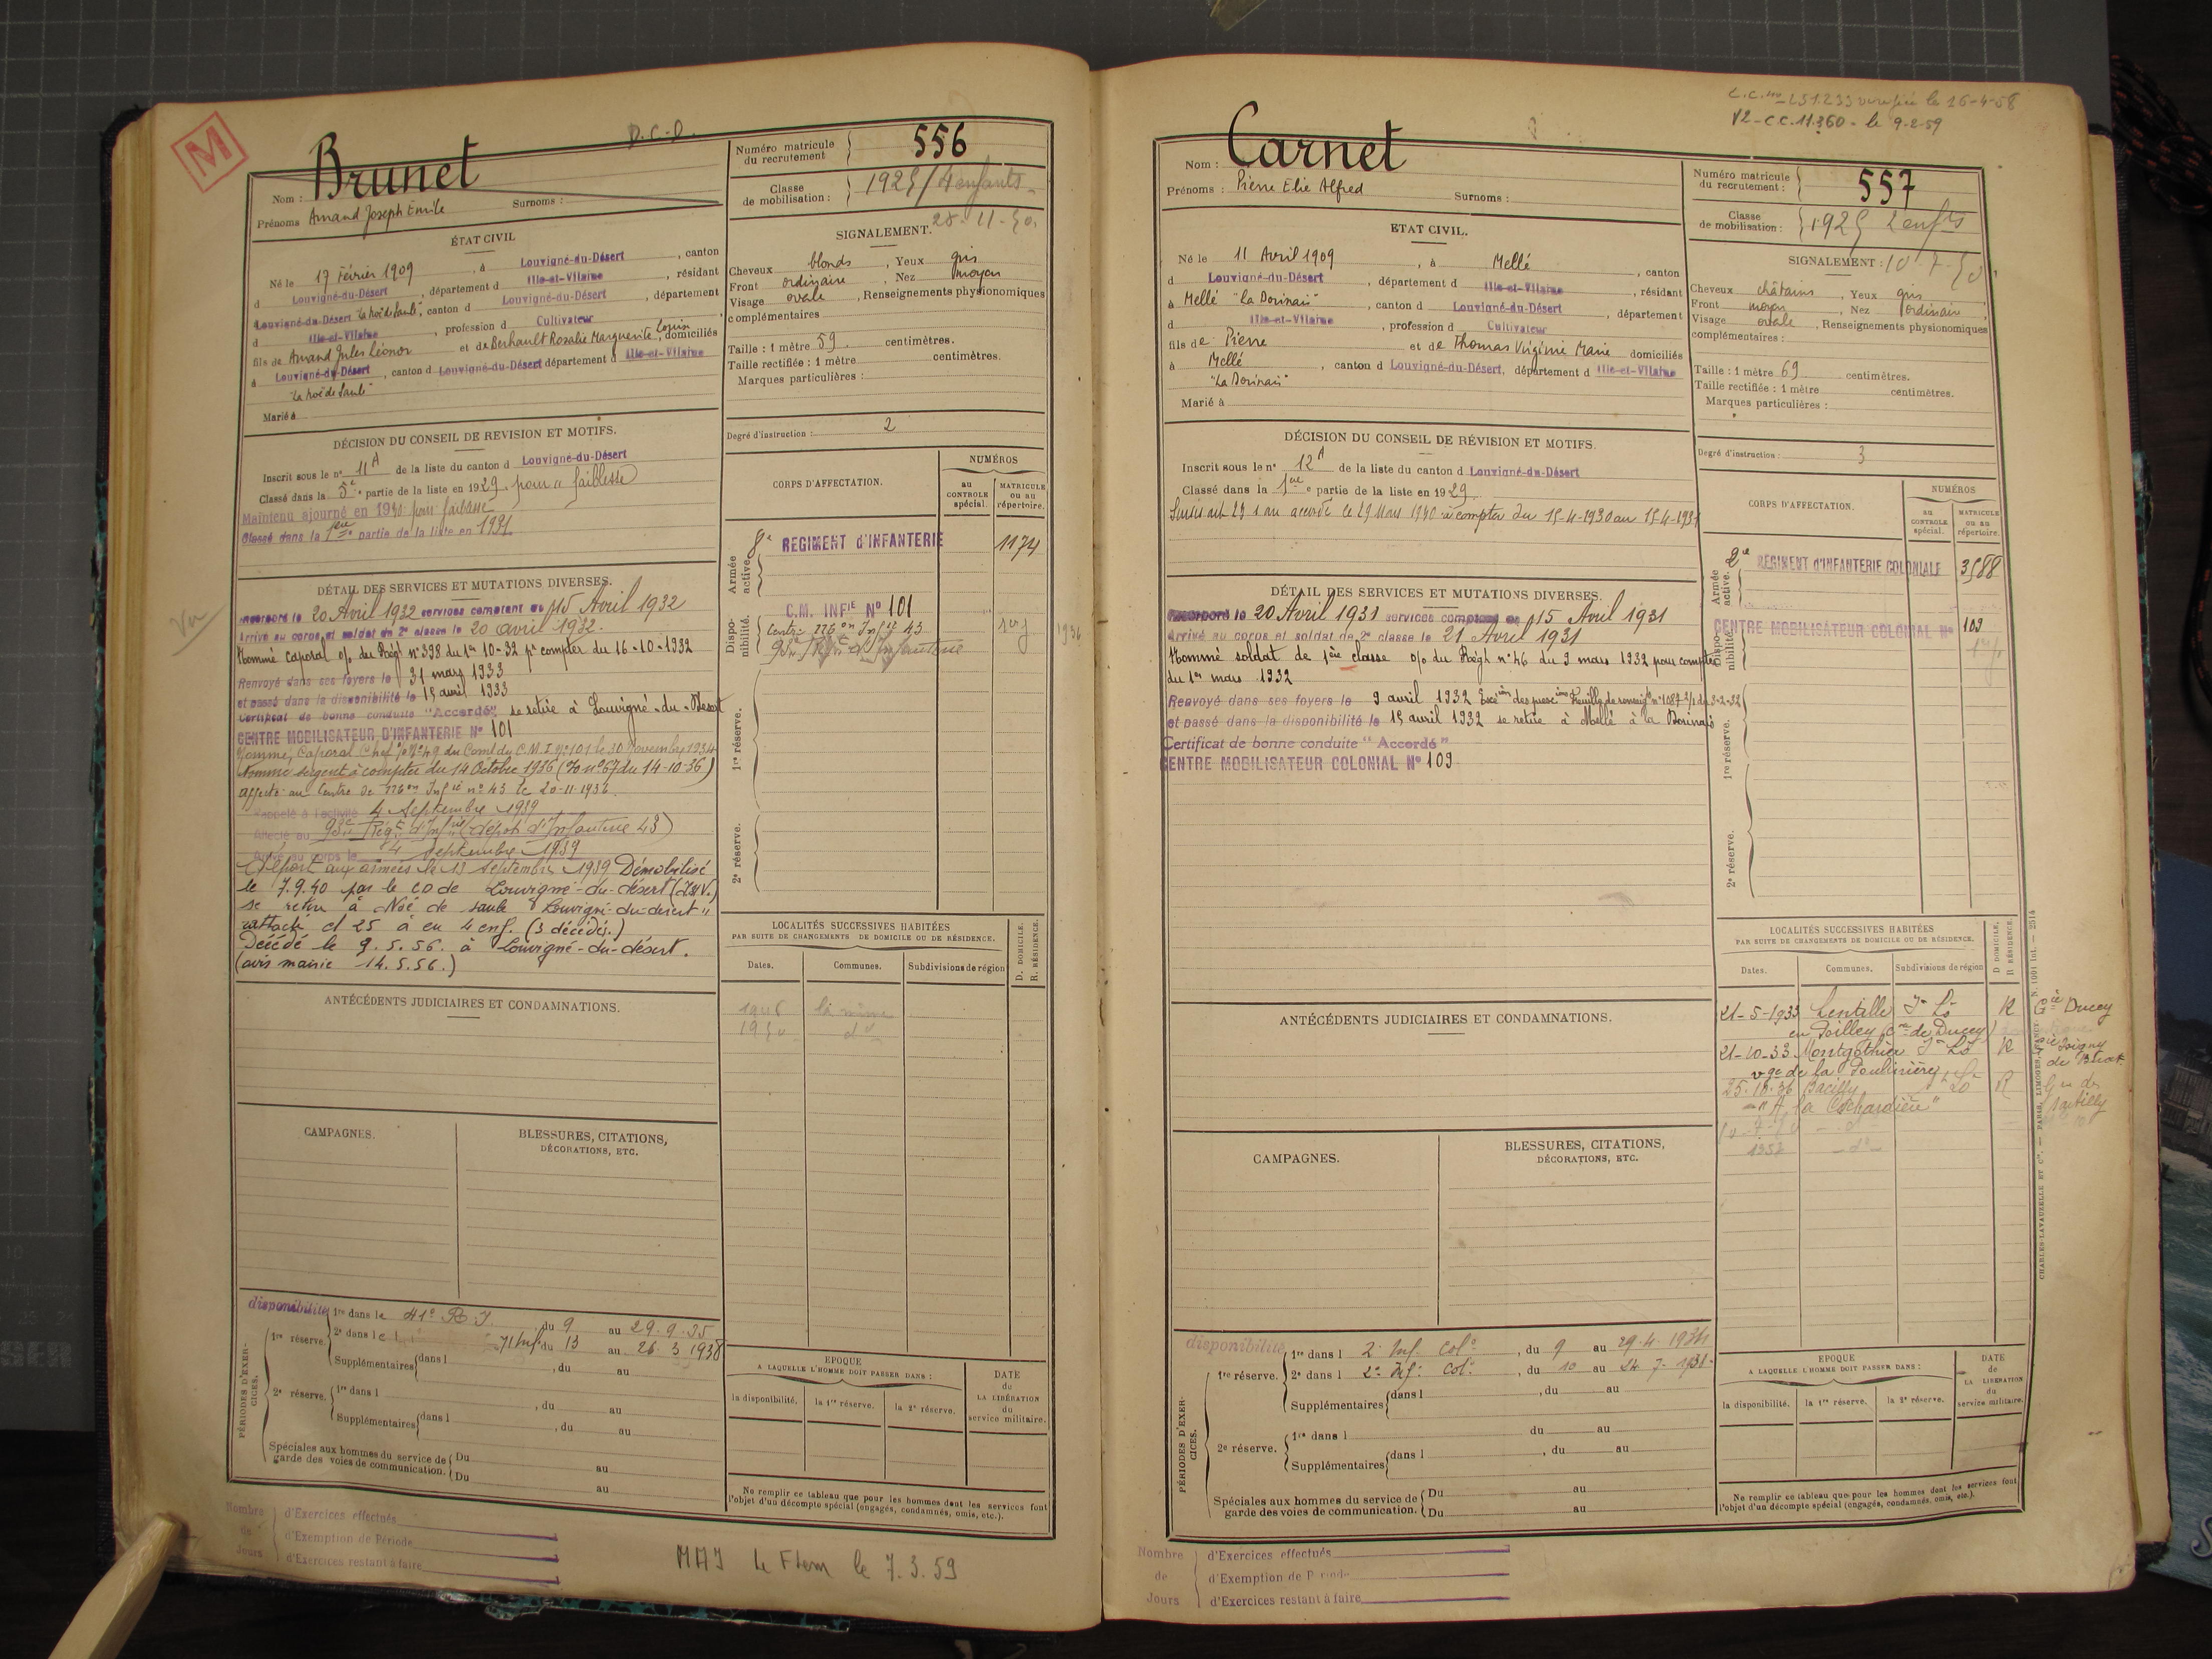 M
D.C.D.
Nom : Brunet
Prénoms Amand Joseph Emile Surnoms :
Numéro matricule du recrutement 556
Classe de mobilisation : 1925 / 4 enfants
28-11-50
ÉTAT CIVIL
Né le 17 Février 1909, à Louvigné-du-Désert, canton
d Louvigné-du-Désert, département d Ille-et-Vilaine, résidant
à Louvigné-du-Désert "la Noë de Saule", canton d Louvigné-du-Désert, département
d Ille-et-Vilaine, profession d Cultivateur
fils de Amand Jules Léonor et de Berhault Rosalie Marguerite Louise, domiciliés
à Louvigné-du-Désert, canton d Louvigné-du-Désert département d Ille-et-Vilaine
"la Noë de Saule"
Marié à
SIGNALEMENT.
Cheveux blonds, Yeux gris
Front ordinaire, Nez moyen
Visage ovale, Renseignements physionomiques
complémentaires
Taille : 1 mètre 59 centimètres.
Taille rectifiée : 1 mètre centimètres.
Marques particulières :
Degré d'instruction : 2
DÉCISION DU CONSEIL DE REVISION ET MOTIFS.
Inscrit sous le n° 11 A de la liste du canton d Louvigné-du-Désert
Classé dans la 5e partie de la liste en 1929 pour "faiblesse"
Maintenu ajourné en 1930 pour faiblesse
Classé dans la 1ère partie de la liste en 1931
DÉTAIL DES SERVICES ET MUTATIONS DIVERSES.
Vu
Incorporé le 20 Avril 1932 services comptant du 15 Avril 1932
Arrivé au corps et soldat de 2e classe le 20 avril 1932.
Nommé caporal o/o du Régt n° 398 du 1er 10-32 pr compter du 16-10-1932
Renvoyé dans ses foyers le 31 mars 1933
et passé dans la disponibilité le 15 avril 1933
Certificat de bonne conduite "Accordé", se retire à Louvigné-du-Désert
CENTRE MOBILISATEUR D'INFANTERIE N° 101
Nommé, Caporal Chef o/o N° 49 du Comt du C.M.I. N° 101 le 30 Novembre 1934
Nommé sergent à compter du 14 Octobre 1936 (o/o n° 67 du 14-10-36)
affecté au Centre de Mon Infie n° 43 le 20-11-1936
Rappelé à l'activité 4 Septembre 1939
Affecté au 93e Régt d'Infie (dépôt d'Infanterie 43)
Arrivé au corps le 4 septembre 1939
Départ aux armées le 13 septembre 1939 Démobilisé
le 7.9.40 par le CD de Louvigné-du-désert (I&V.)
se retire à Noë de saule "Louvigné-du-désert"
rattaché cl 25 a eu 4 enf. (3 décédés.)
Décédé le 9.5.56. à Louvigné-du-désert.
(avis mairie 14.5.56.)
CORPS D'AFFECTATION.
NUMÉROS
au CONTROLE spécial.
MATRICULE ou au répertoire.
Armée active.
8e REGIMENT d'INFANTERIE 1174
Disponibilité.
C.M. INFie N° 101
Centre Mon Infie 43
93e Régt d'Infanterie
1936
1re réserve.
2e réserve.
LOCALITÉS SUCCESSIVES HABITÉES
PAR SUITE DE CHANGEMENTS DE DOMICILE OU DE RÉSIDENCE.
D. DOMICILE.
R. RÉSIDENCE.
Dates. Communes. Subdivisions de région
1946 la même
1950 do
ANTÉCÉDENTS JUDICIAIRES ET CONDAMNATIONS.
CAMPAGNES.
BLESSURES, CITATIONS,
DÉCORATIONS, ETC.
PÉRIODES D'EXERCICES.
disponibilité 1re dans le 41e R.I. du 9 au 29.9.35
1re réserve. 2e dans le 71 Inf. du 13 au 26.3.1938
Supplémentaires dans l , du au
2e réserve. 1re dans l , du au
Supplémentaires dans l , du au
Spéciales aux hommes du service de garde des voies de communication. Du au
Du au
EPOQUE
A LAQUELLE L'HOMME DOIT PASSER DANS :
la disponibilité. la 1re réserve. la 2e réserve.
DATE de LA LIBÉRATION du service militaire.
Ne remplir ce tableau que pour les hommes dont les services font
l'objet d'un décompte spécial (engagés, condamnés, omis, etc.).
Nombre de Jours
d'Exercices effectués
d'Exemption de Période
d'Exercices restant à faire
MAJ Le Flem le 7.3.59
vérifiée le 26-4-58
V2-C.C.11.360- le 9-2-59
Nom : Carnet
Prénoms : Pierre Elie Alfred Surnoms :
Numéro matricule du recrutement : 557
Classe de mobilisation : 1925 2 enfts
10-7-50
ETAT CIVIL.
Né le 11 Avril 1909, à Mellé, canton
d Louvigné-du-Désert, département d Ille-et-Vilaine, résidant
à Mellé "La Dorinais", canton d Louvigné-du-Désert, département
d Ille-et-Vilaine, profession d Cultivateur
fils de Pierre et de Thomas Virginie Marie domiciliés
à Mellé, canton d Louvigné-du-Désert, département d Ille-et-Vilaine
"La Dorinais"
Marié à
SIGNALEMENT :
Cheveux châtains, Yeux gris
Front moyen, Nez ordinaire
Visage ovale, Renseignements physionomiques
complémentaires :
Taille : 1 mètre 69 centimètres.
Taille rectifiée : 1 mètre centimètres.
Marques particulières :
Degré d'instruction : 3
DÉCISION DU CONSEIL DE RÉVISION ET MOTIFS.
Inscrit sous le n° 12 A de la liste du canton d Louvigné-du-Désert
Classé dans la 1ère partie de la liste en 1929
Sursis art 23 1 an accordé le 29 Mars 1930 à compter du 15-4-1930 au 15-4-1931
DÉTAIL DES SERVICES ET MUTATIONS DIVERSES.
Incorporé le 20 Avril 1931 services comptant du 15 Avril 1931
Arrivé au corps et soldat de 2e classe le 21 Avril 1931
Nommé soldat de 1ère classe o/o du Régt n° 46 du 9 mars 1932 pour compter
du 1er mars 1932
Renvoyé dans ses foyers le 9 avril 1932
et passé dans la disponibilité le 15 avril 1932 se retire à Mellé à la Dorinais
Certificat de bonne conduite "Accordé"
CENTRE MOBILISATEUR COLONIAL N° 109
CORPS D'AFFECTATION.
NUMÉROS
au CONTROLE spécial.
MATRICULE ou au répertoire.
Armée active.
2e RÉGIMENT d'INFANTERIE COLONIALE 3588
Disponibilité.
CENTRE MOBILISATEUR COLONIAL N° 109
1re réserve.
2e réserve.
LOCALITÉS SUCCESSIVES HABITÉES
PAR SUITE DE CHANGEMENTS DE DOMICILE OU DE RÉSIDENCE.
D. DOMICILE.
R. RÉSIDENCE.
Dates. Communes. Subdivisions de région
21-5-1933 Lentille St Lô R Gie Ducey
en Poilley (con de Ducey)
21-10-33 Montgothier St Lô R
vge de la Poulinière
25-10-36 Bacilly St Lô R
"A la Cochardière"
10-7-50 do
1952 do
ANTÉCÉDENTS JUDICIAIRES ET CONDAMNATIONS.
CAMPAGNES.
BLESSURES, CITATIONS,
DÉCORATIONS, ETC.
PÉRIODES D'EXERCICES.
disponibilité 1re dans l 2e Inf. Colle, du 9 au 29-4-1934
1re réserve. 2e dans l 2e Inf. Col., du 10 au 24 7-1938
Supplémentaires dans l , du au
2e réserve. 1re dans l du au
Supplémentaires dans l , du au
Spéciales aux hommes du service de garde des voies de communication. Du au
Du au
EPOQUE
A LAQUELLE L'HOMME DOIT PASSER DANS :
la disponibilité. la 1re réserve. la 2e réserve.
DATE de LA LIBÉRATION du service militaire.
Ne remplir ce tableau que pour les hommes dont les services font
l'objet d'un décompte spécial (engagés, condamnés, omis, etc.).
CHARLES-LAVAUZELLE ET Cie. — PARIS, LIMOGES, NANCY.
Nombre de Jours
d'Exercices effectués
d'Exemption de Période
d'Exercices restant à faire